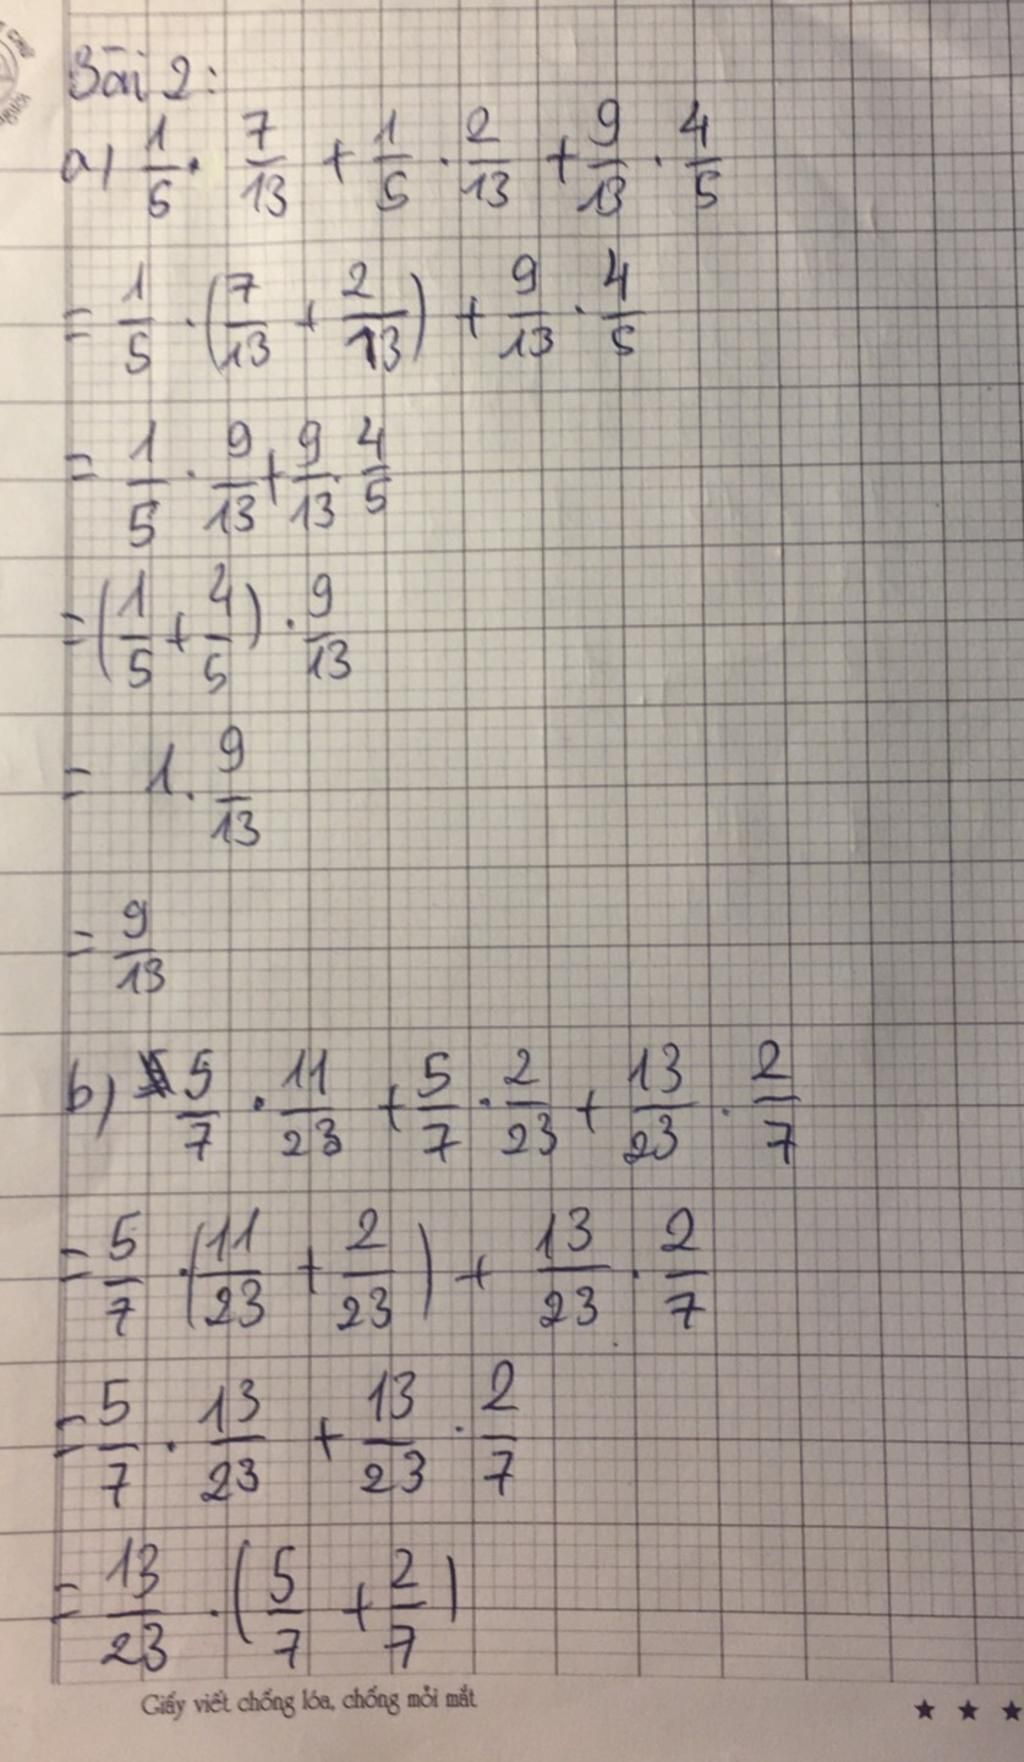 Bài 2:
a) 1/5 . 7/13 + 1/5 . 2/13 + 9/13 . 4/5
= 1/5 . (7/13 + 2/13) + 9/13 . 4/5
= 1/5 . 9/13 + 9/13 . 4/5
= (1/5 + 4/5) . 9/13
= 1 . 9/13
= 9/13
b) 5/7 . 11/23 + 5/7 . 2/23 + 13/23 . 2/7
= 5/7 . (11/23 + 2/23) + 13/23 . 2/7
= 5/7 . 13/23 + 13/23 . 2/7
= 13/23 . (5/7 + 2/7)
Giấy viết chống lóa, chống mỏi mắt